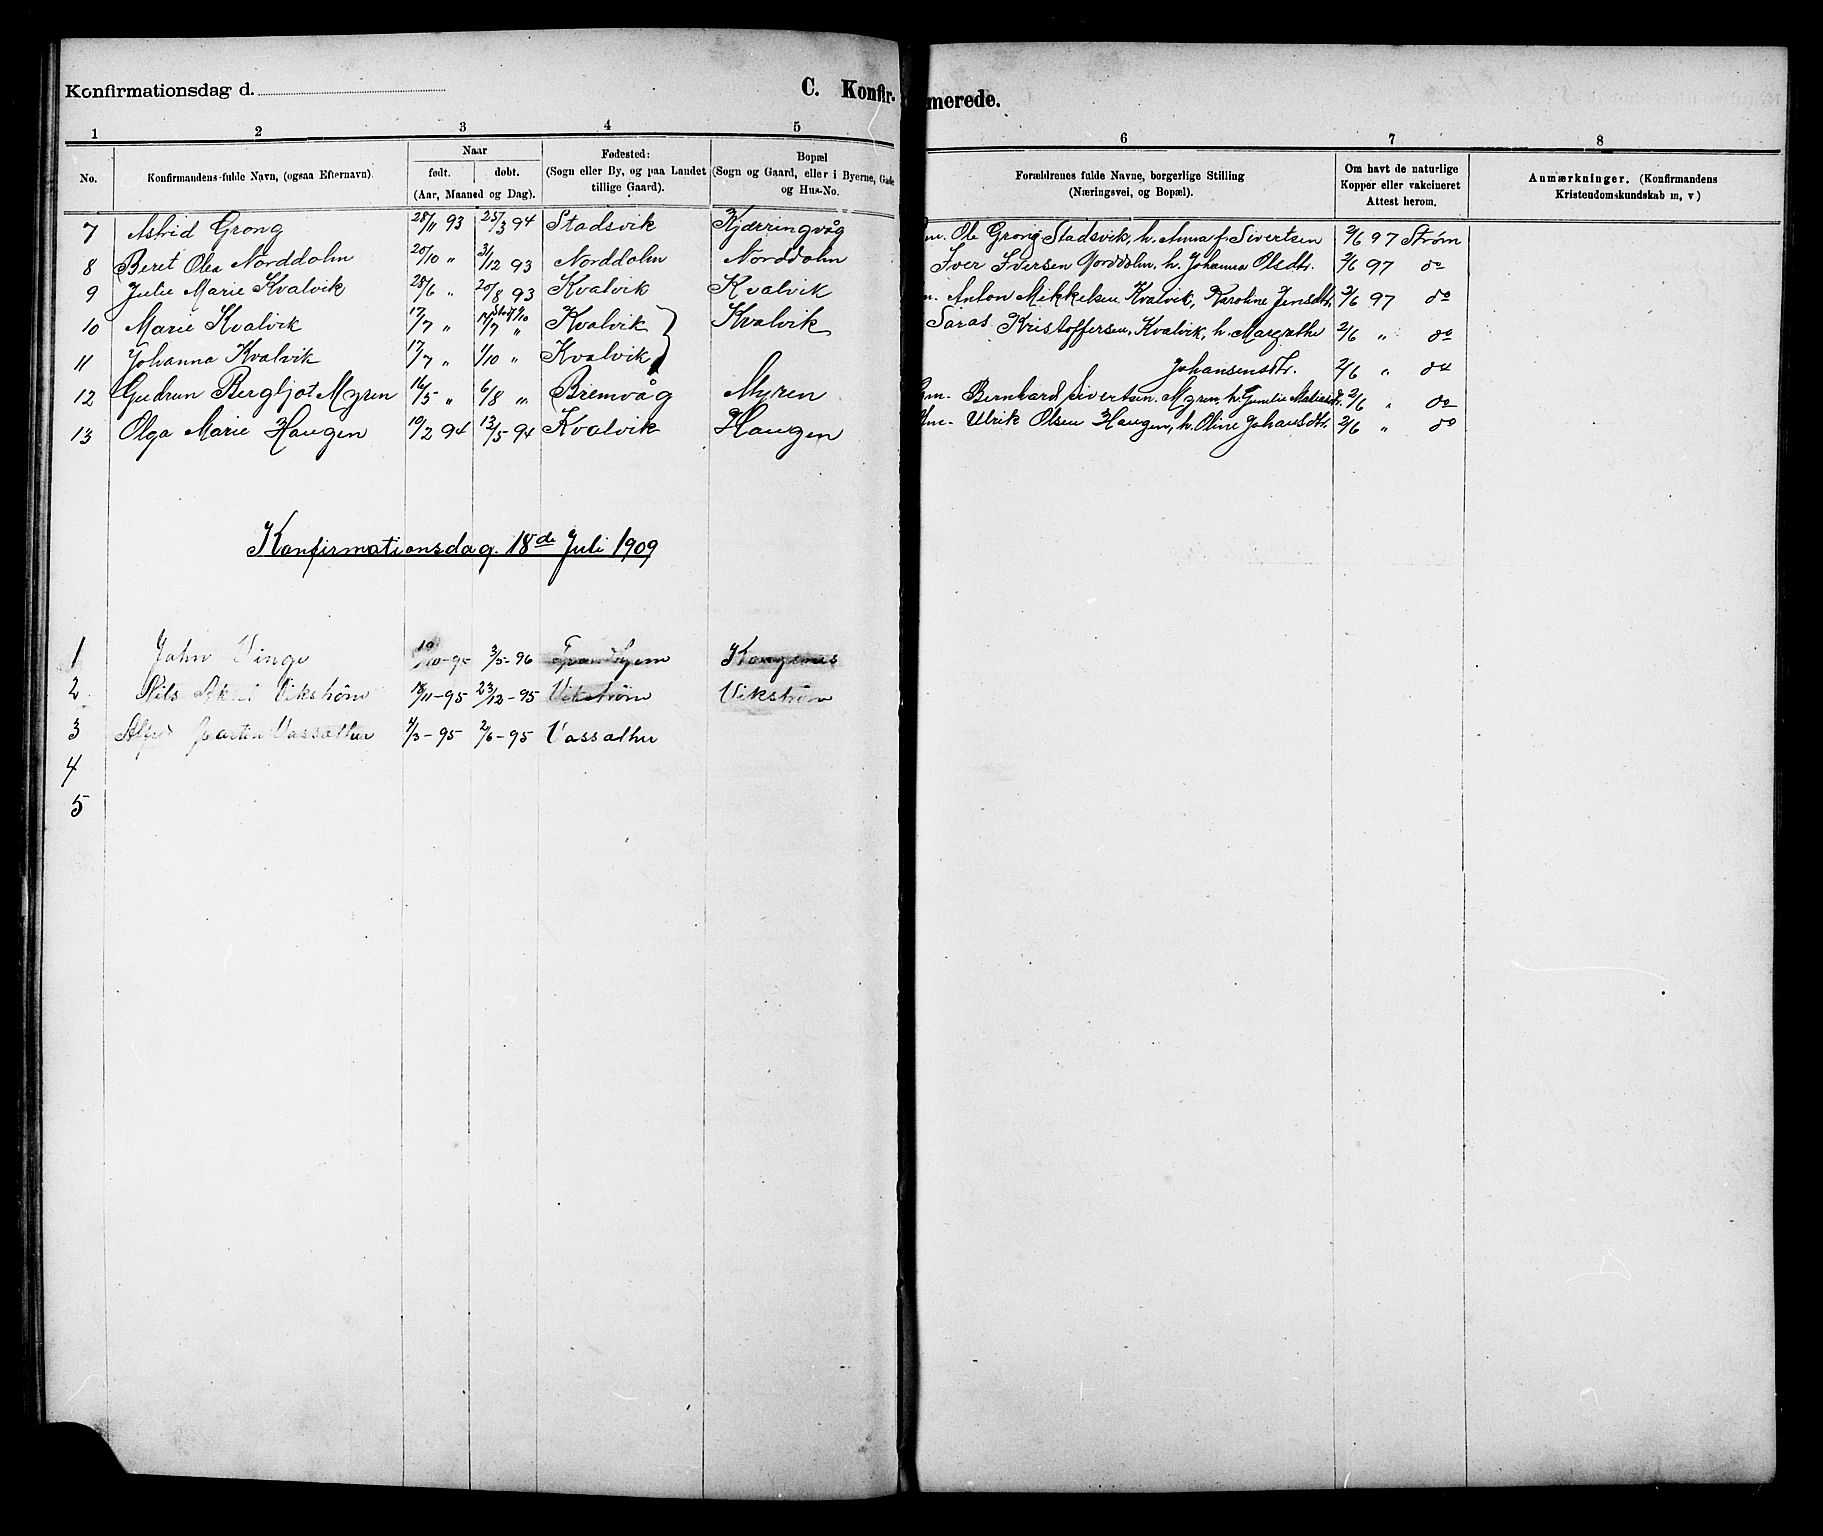 Konfirmationsdag d.
C. Konfir-
merede.
1 2 3 4 5 6 7 8
No.
Konfirmandens fulde Navn, (ogsaa Efternavn)
Naar
født. døbt.
(Aar, Maaned og Dag).
Fødested:
(Sogn eller By, og paa Landet
tillige Gaard).
Bopæl
(Sogn og Gaard, eller i Byerne, Gade
og Hus-No.
Forældrenes fulde Navne, borgerlige Stilling
(Næringsvei, og Bopæl).
Om havt de naturlige
Kopper eller vakcineret
Attest herom.
Anmærkninger. (Konfirmandens
Kristendomskundskab m, v)
7 Astrid Grong 28/11 93 25/3 94 Stadsvik Kjærringvåg Ole Grong Stadsvik, h. Anna f. Sivertsen 2/6 97 Strøm
8 Beret Olea Norddolm 20/10 " 31/12 93 Norddolm Norddolm Iver Iversen Norddolm, h. Johanna Olsdtr. 2/6 97 do
9 Julie Marie Kvalvik 28/6 " 20/8 93 Kvalvik Kvalvik Anton Mikkelsen Kvalvik, Karoline Jensdtr 2/6 97 do
10 Marie Kvalvik 17/7 " 17/7 " Kvalvik Kvalvik Saras Kristoffersen, Kvalvik, h. Margrathe 2/6 " do
11 Johanna Kvalvik 17/7 " 1/10 " Kvalvik Johansensdtr. 2/6 " do
12 Gudrun Bergljot Myren 16/5 " 6/8 " Bremvåg Myren Gm. Bernhard Sivertsen Myren, h. 2/6 " do
13 Olga Marie Haugen 19/2 94 13/5 94 Kvalvik Haugen Ulrik Olsen Haugen, h. Oline Johansdtr. 2/6 " do
Konfirmationsdag. 18de Juli 1909
1 John Vinge 19/10-95 3/5-96 Kongsnes
2 Nils Aksel Vikstrøm 18/11-95 23/12-95 Vikstrøm Vikstrøm
3 Alfred Martin Vassæther 4/3-95 2/6-95 Vassæther
4
5